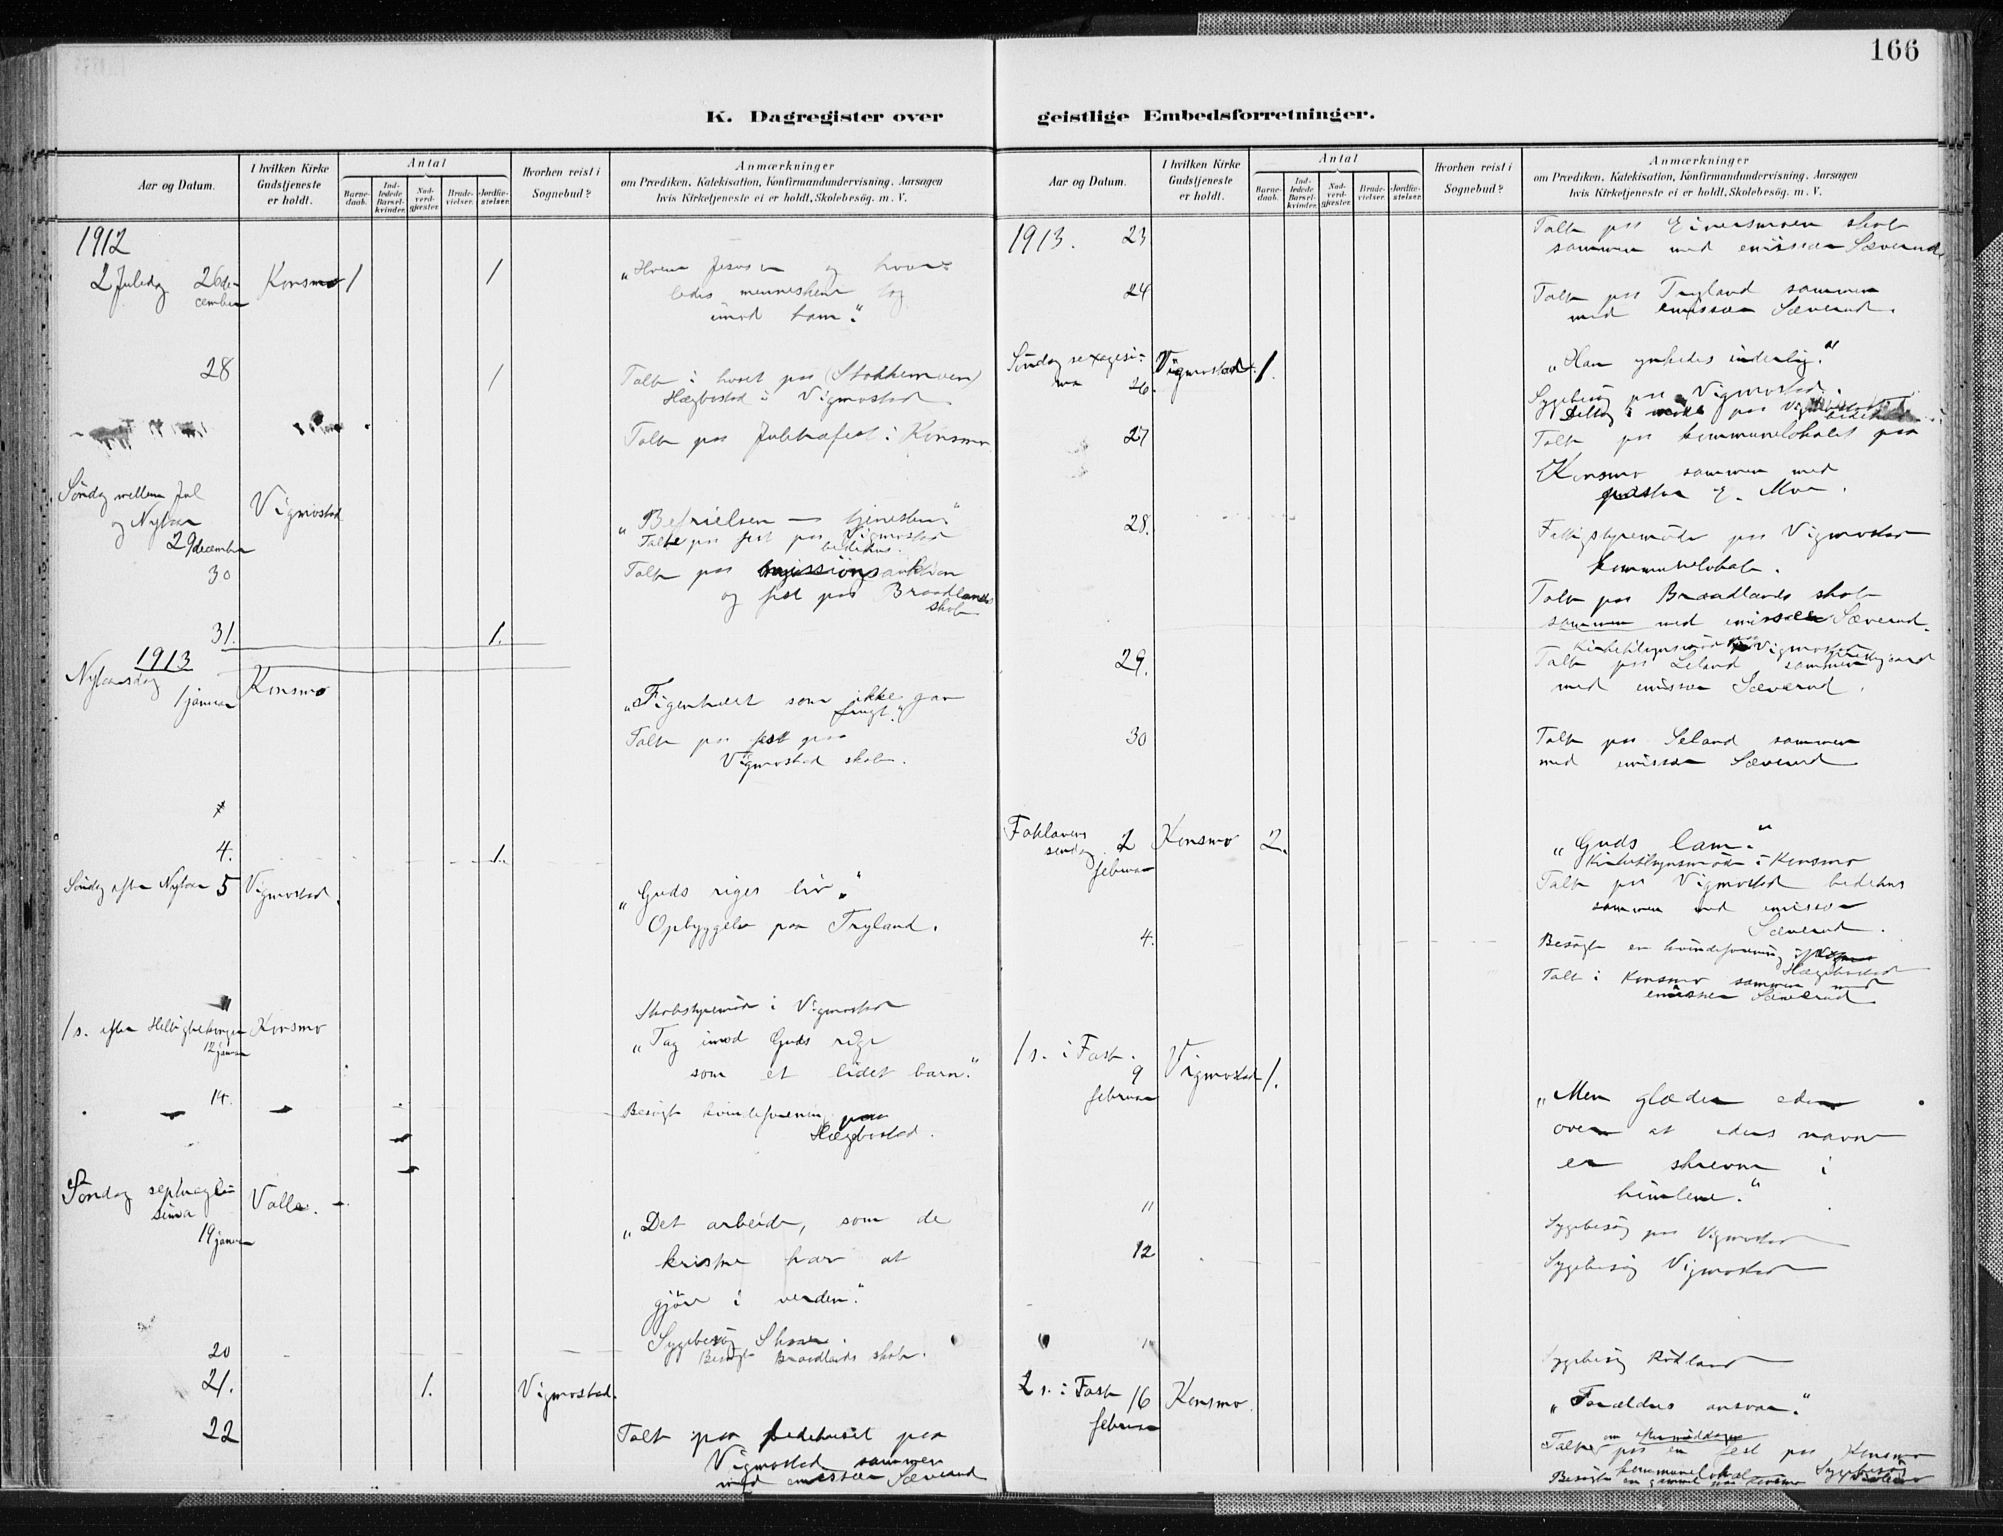 166
K. Dagregister over geistlige Embedsforretninger.
Aar og Datum.
I hvilken Kirke Gudstjeneste er holdt.
Antal
Barne-daab.
Ind-ledede Barsel-kvinder.
Nad-verd-gjester.
Brude-vielser.
Jordfæ-stelser.
Hvorhen reist i Sognebud?
Anmærkninger
om Prædiken, Katekisation, Konfirmandundervisning, Aarsagen
hvis Kirketjeneste ei er holdt, Skolebesøg. m. V.
1912
2 Juledag 26 de-
cember Konsmo 1 1
"Hvem Jesus er og hvor-
ledes menneskene tog
imod ham."
28 1
Talte i huset paa (Stokkemoen)
Hægbostad i Vigmostad
Talte paa Juletræfest i Konsmo
Søndag mellem Jul
og Nytaar
29 december Vigmostad
"Befrielsen — tjenesten"
Talte paa fest paa Vigmostad
bedehus.
30
Talte paa missionsauktion
og fest paa Braadlands
skole
31. 1.
1913
Nytaarsdag
1 januar Konsmo
"Figentræet som ikke gav
frugt."
Talte paa fest paa
Vigmostad skole.
4. 1.
Søndag efter Nytaar 5 Vigmostad.
"Guds riges liv."
Opbyggelse paa Tryland.
11
Skolestyremøde i Vigmostad
1 s. efter Helligtrekonger
12 januar Konsmo
"Tag imod Guds rige
som et lidet barn."
14.
Besøgt kvindeforening paa
Hægbostad.
Søndag septuage-
sima
19 januar Valle.
"Det arbeide, som de
kristne har at
gjøre i verden."
Sygebesøg
20
Besøgt Braadlands skole.
21. 1. Vigmostad.
22
Talte paa bedehuset paa
Vigmostad sammen
med emissær Sæverud
Aar og Datum.
I hvilken Kirke Gudstjeneste er holdt.
Antal
Barne-daab.
Ind-ledede Barsel-kvinder.
Nad-verd-gjester.
Brude-vielser.
Jordfæ-stelser.
Hvorhen reist i Sognebud?
Anmærkninger
om Prædiken, Katekisation, Konfirmandundervisning, Aarsagen
hvis Kirketjeneste ei er holdt, Skolebesøg. m. V.
1913. 23
Talte paa Eiversmoen skole
sammen med emissær Sæverud
24
Talte paa Tryland sammen
med emissær Sæverud.
Søndag sexagesi-
ma 26. Vigmostad 1.
"Han ynkedes inderlig."
Sygebesøg paa Vigmostad.
Deltog i møte paa Vigmostad
bedehus
27
Talte paa kommunelokalet paa
Konsmo sammen med
E. Moe.
28.
Fattigstyremøde paa Vigmostad
kommunelokale.
Talte paa Braadlands skole
sammen med emissær Sæverud.
29.
Kirketilsynsmøde paa Vigmostad
Talte paa Leland sammen
med emissær Sæverud.
30
Talte paa Leland sammen
med emissær Sæverud
Fastelavens
søndag 2
februar Konsmo 2.
"Guds lam."
Kirketilsynsmøde i Konsmo
Talte paa Vigmostad bedehus
sammen med emissær
Sæverud.
4.
Besøgte en kvindeforening
Hægbostad
Talte i Konsmo sammen med
emissær Sæverud
1 s. i Faste.
9
februar Vigmostad 1.
"Men glæder eder
over at eders navne
er skrevne i
himlene."
11
Sygebesøg paa Vigmostad
12
Sygebesøg Vigmostad
Sygebesøg
2 s. i Faste 16
februar Konsmo.
"Forældres ansvar."
Talte om eftermiddagen
paa en fest paa Konsmo
kommunelokal Sygebesøg
Besøgte en gammel paa Konsmo